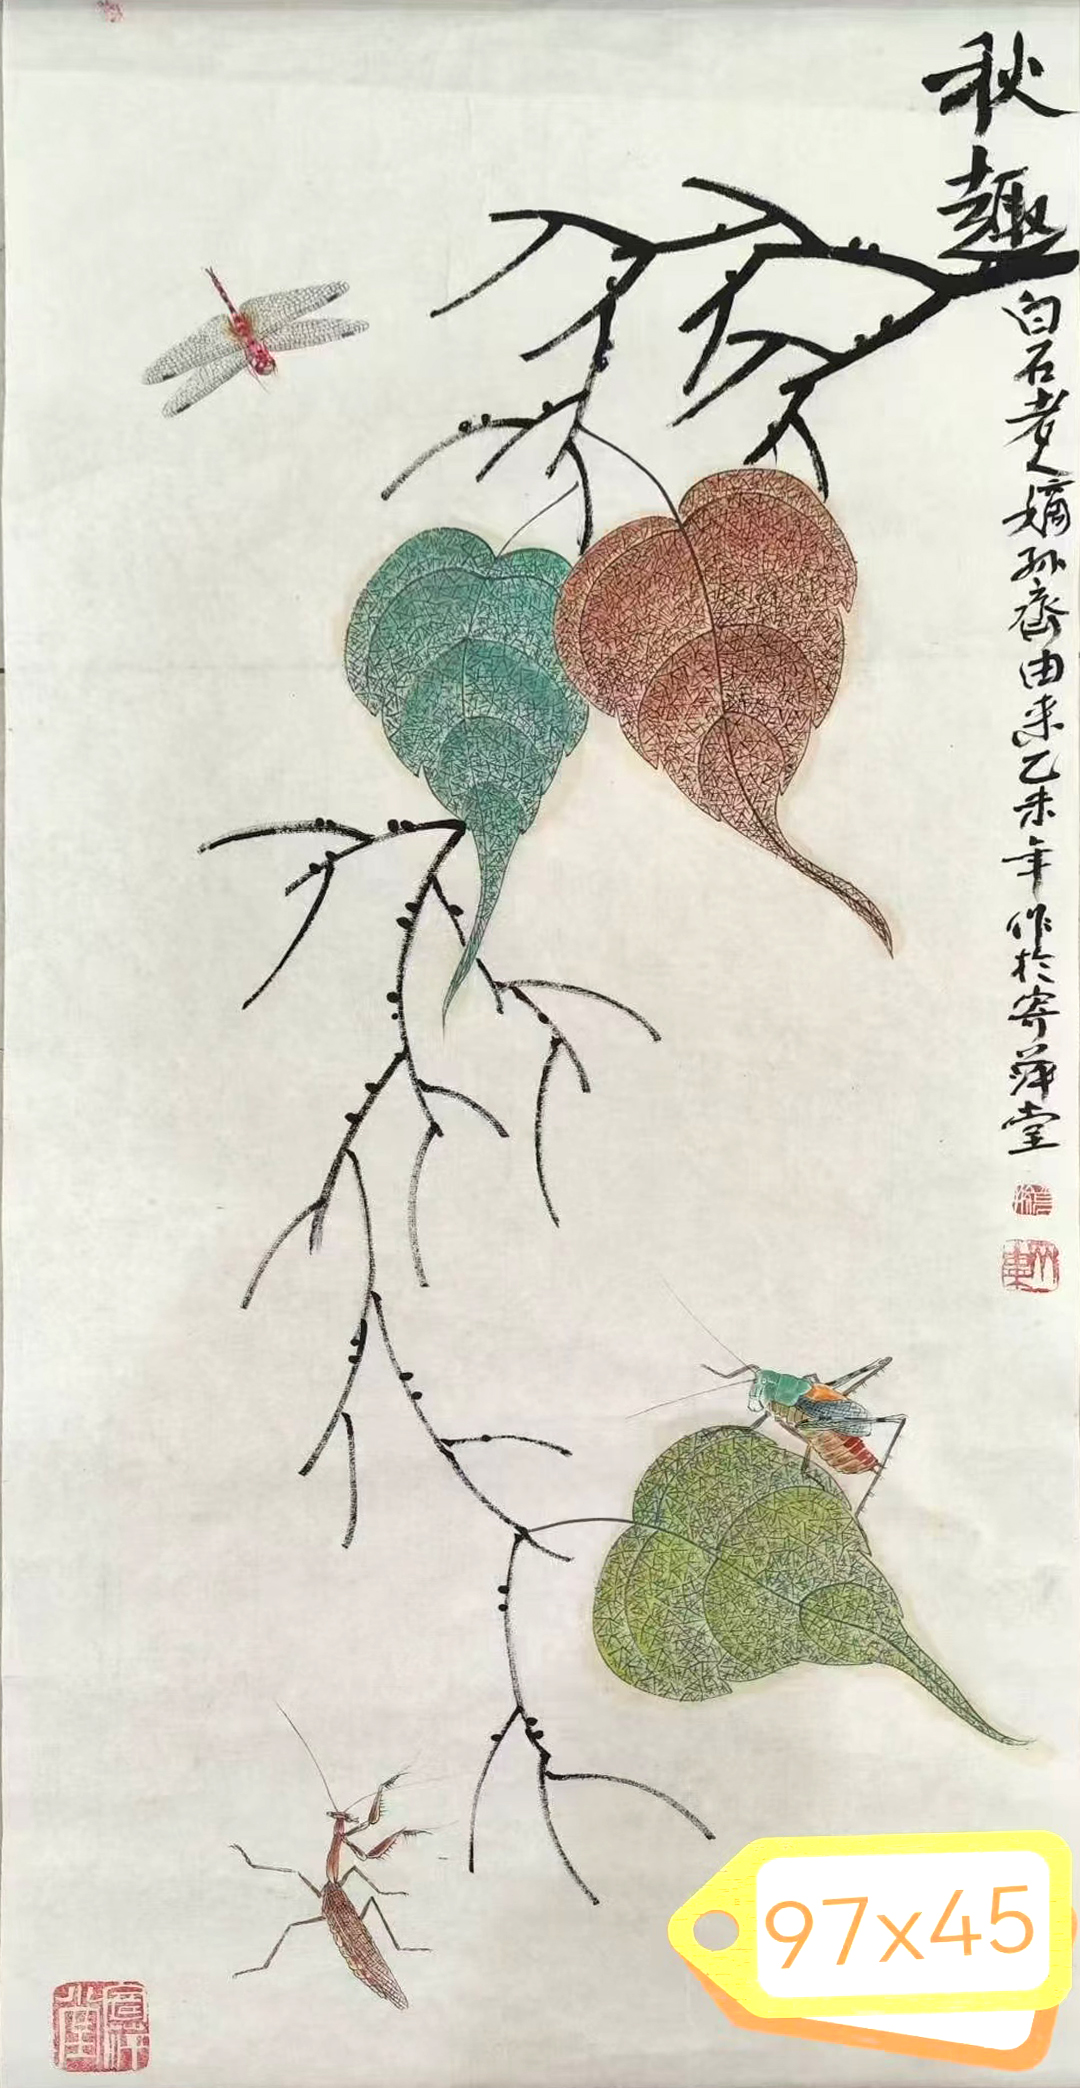 秋趣
白石老人嫡孙齊由来乙未年作於寄萍堂
97x45